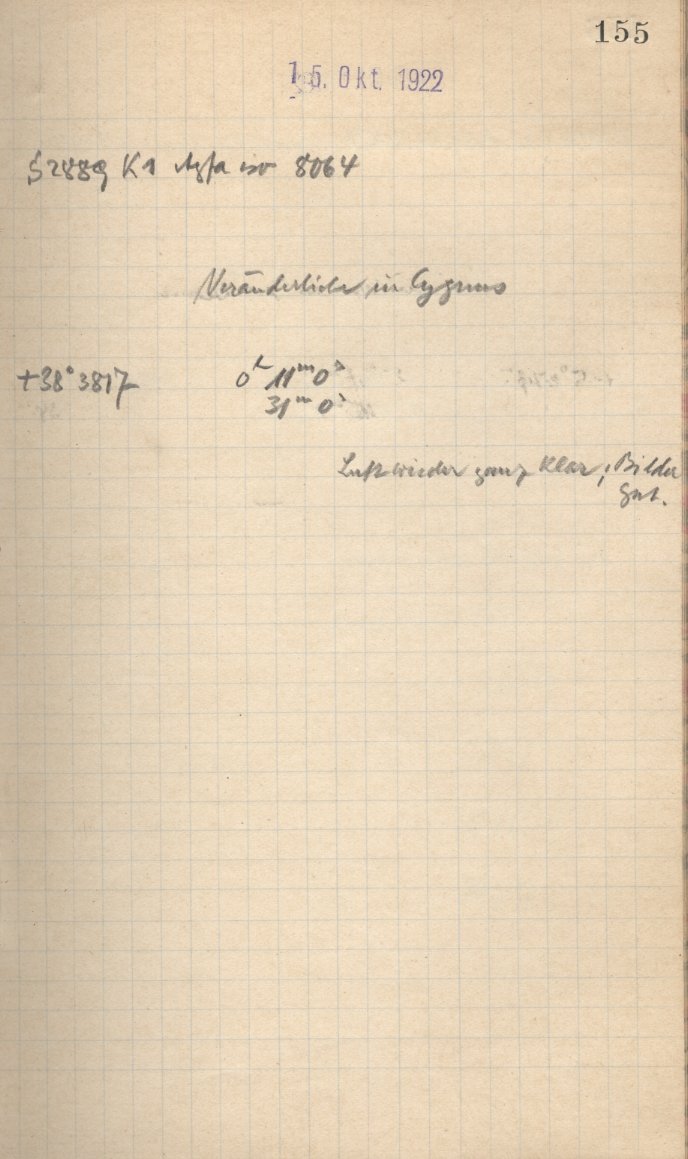 155
15. Okt. 1922
S2889 K1 Agfa iso 8064
Veränderliche in Cygnus
+38° 3817 0h 11m 0s
31m 0s
Luft wieder ganz klar, Bilder
gut.